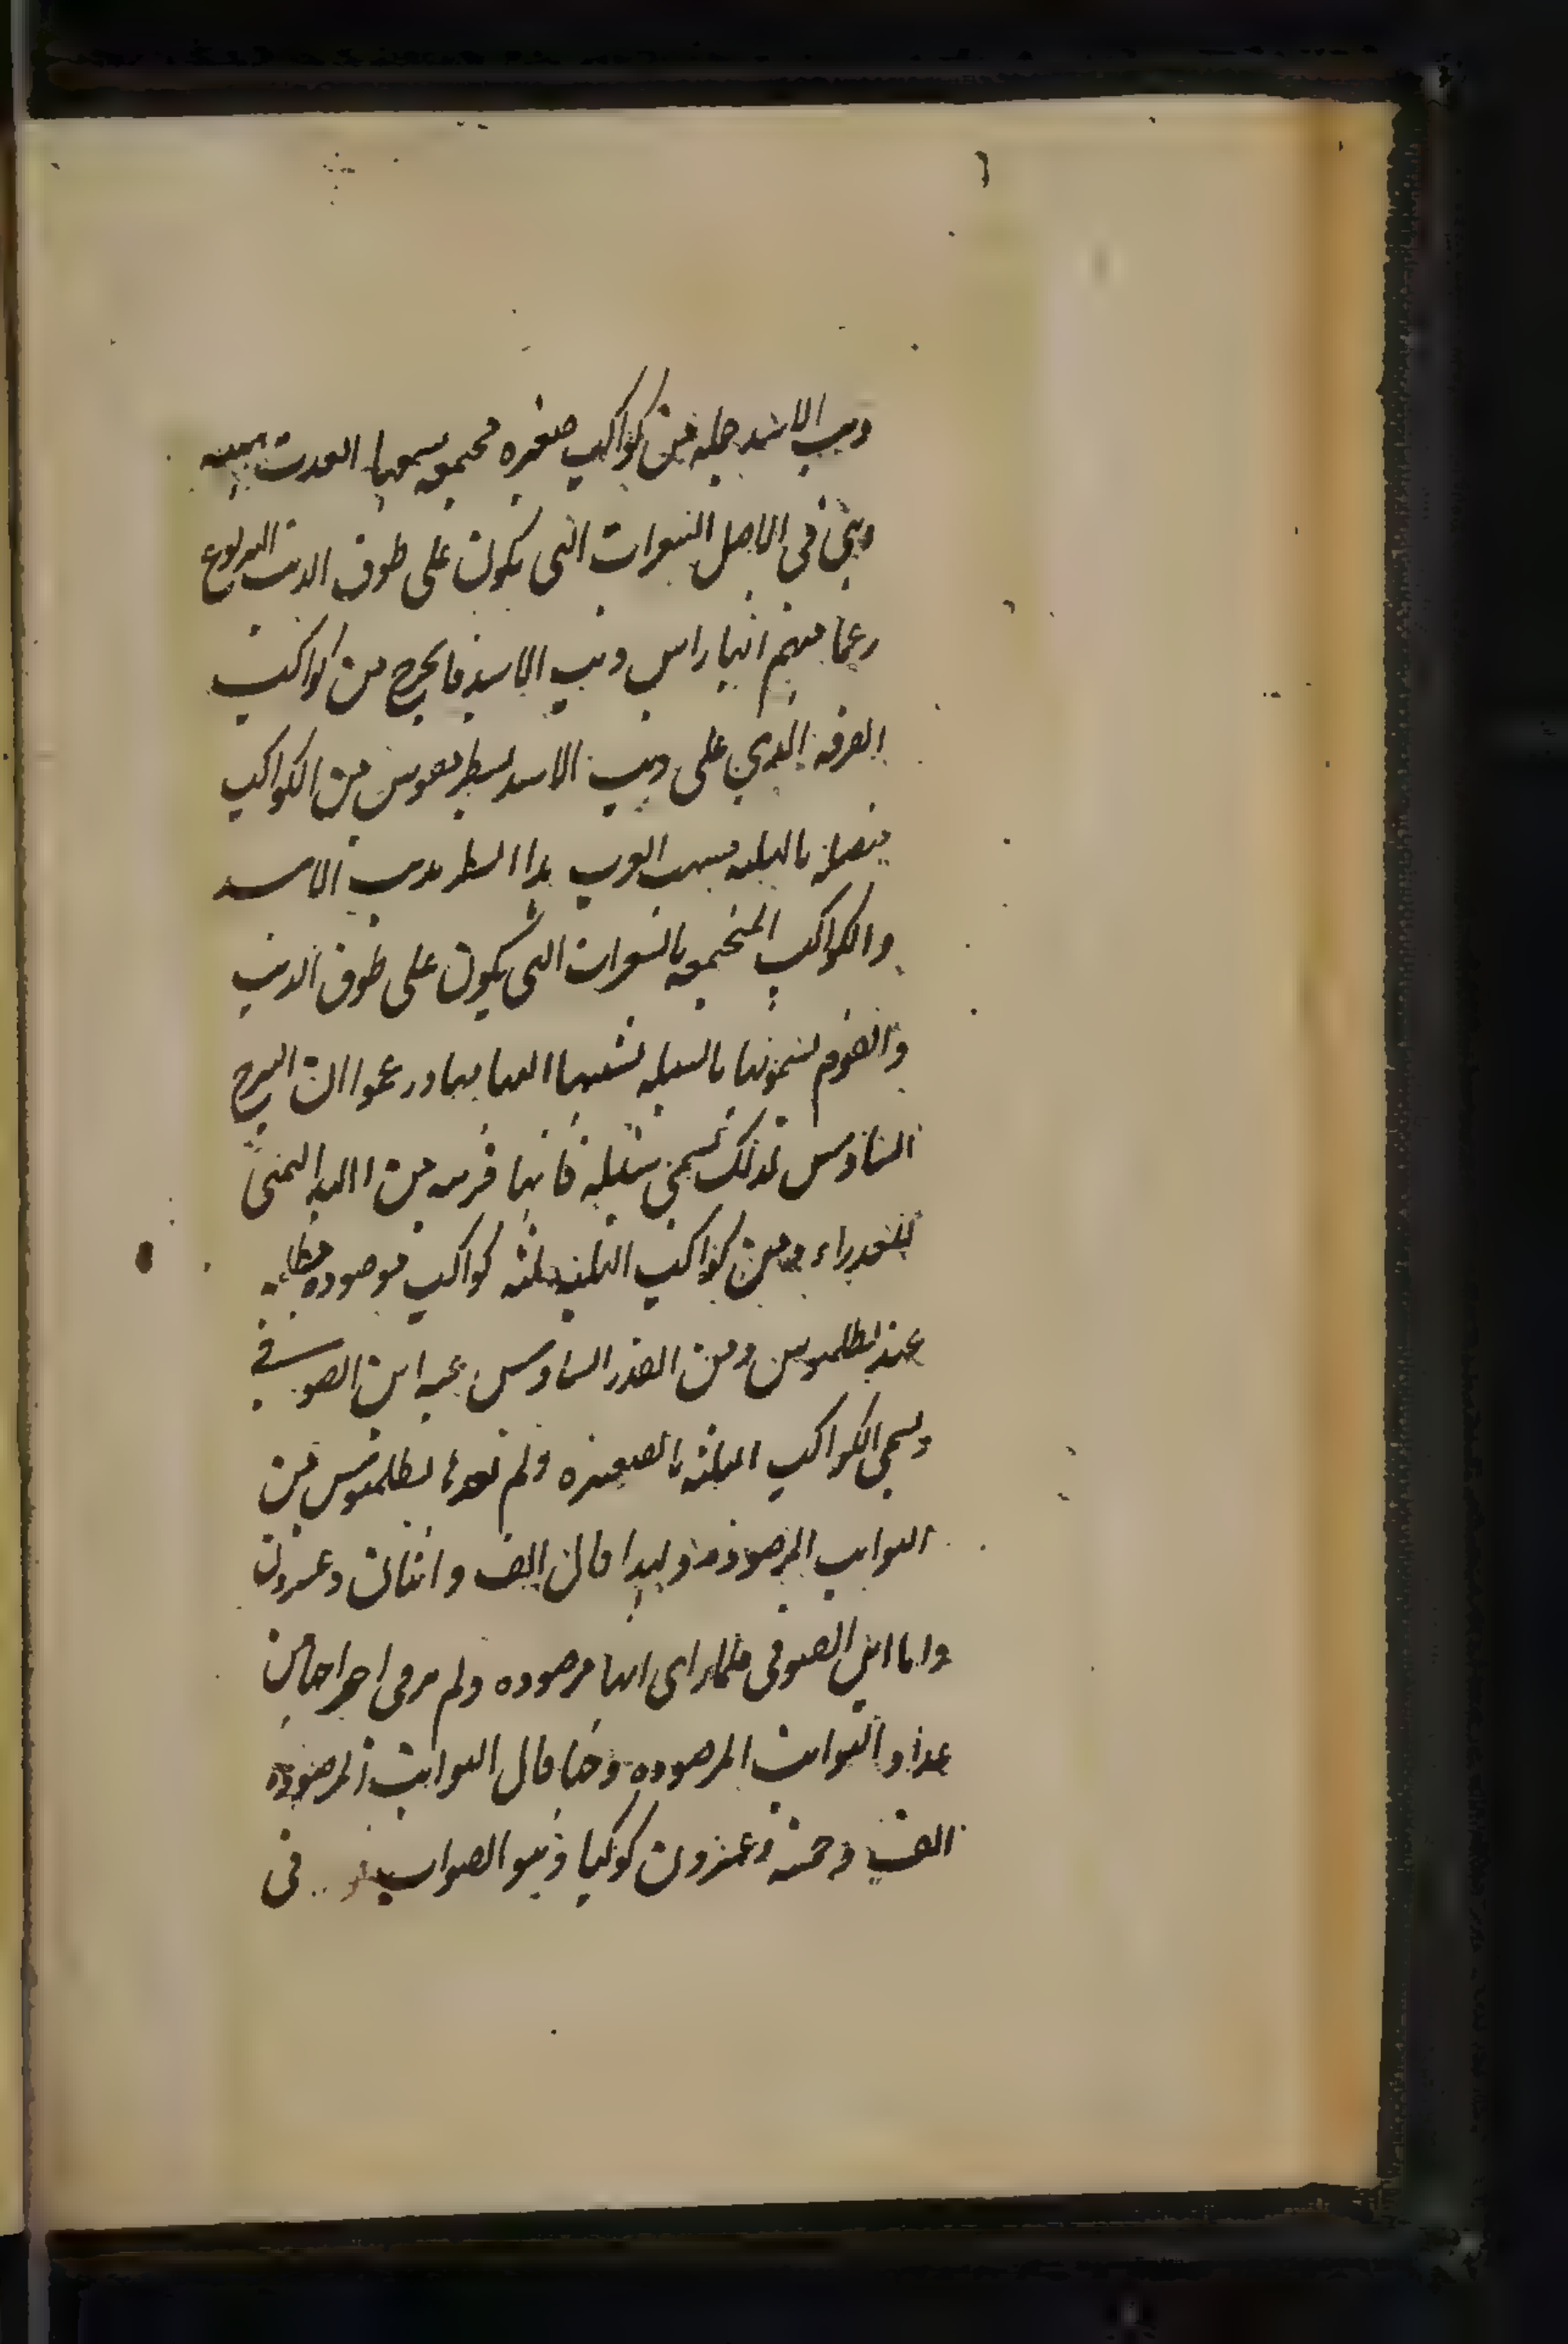 ذنب الاسد جمله من كواكب صغيره مجتمعه سمتها العرب هلبه
وهى فى الاصل الشعرات التى يكون على طرف الذنب اليربوع
زعما منهم انها راس ذنب الاسد فانه يخرج من كواكب
الصرفه الذى على ذنب الاسد سطر مقوس من الكواكب
متصله بالهلبه فشبهت العرب هذا السطر بذنب الاسد
والكواكب المجتمعه بالشعرات التى يكون على طرف الذنب
والقوم يسمونها بالسنبله تشبيها لها بها وزعموا ان البرج
السادس لذلك سمى سنبله فانها قريبه من اليد اليمنى
للعذراء ومن كواكب الهلبه ثلثه كواكب مرصوده مظلمه
عند بطلميوس ومن القدر السادس عند ابن الصوفى
ويسمى الكواكب الثلثه بالضفيره ولم يعدها بطلميوس من
الثوابت المرصوده ولهذا قال الف واثنان وعشرون
واما ابن الصوفى فلما راى انها مرصوده ولم ير فى اخراجها من
عداد الثوابت المرصوده وجها قال الثوابت المرصوده
الف وخمسه وعشرون كوكبا وهو الصواب فى